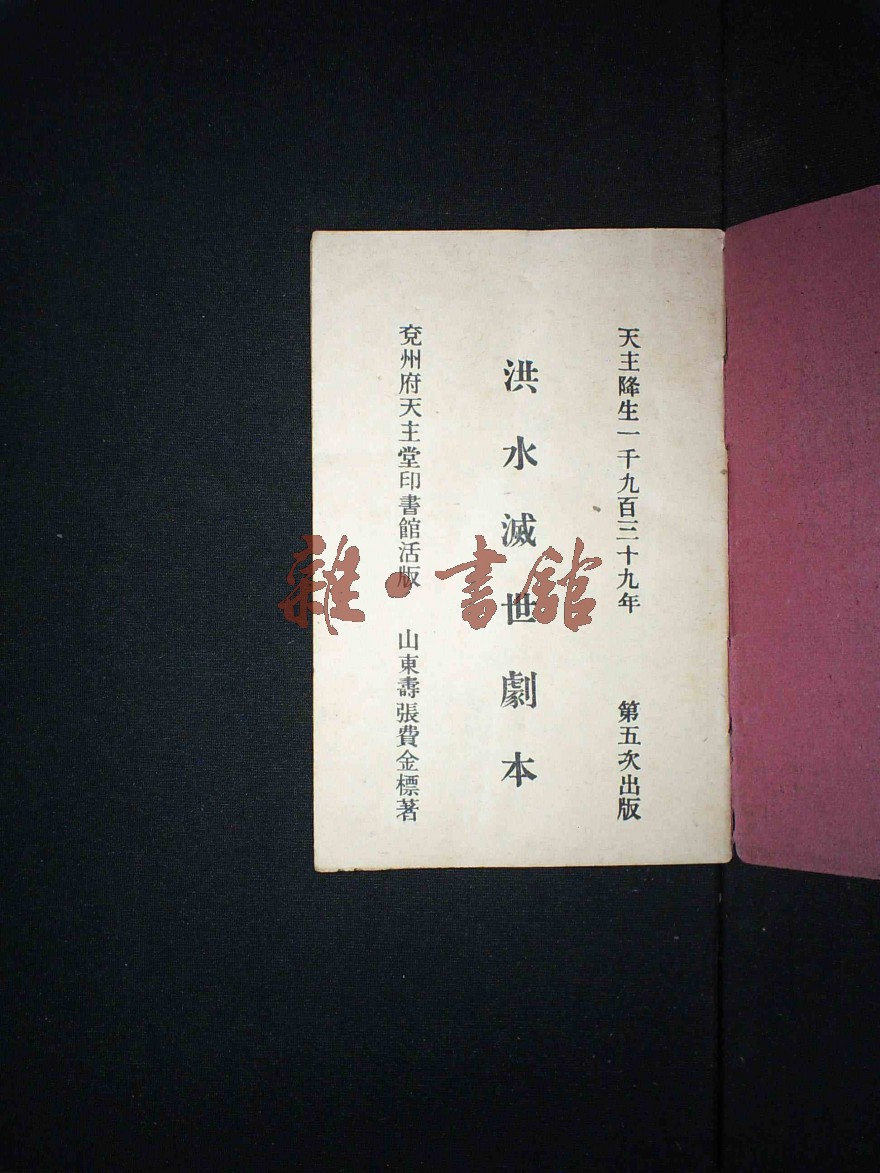 天主降生一千九百三十九年 第五次出版
洪水滅世劇本
兗州府天主堂印書館活版 山東壽張費金標著
雜·書館